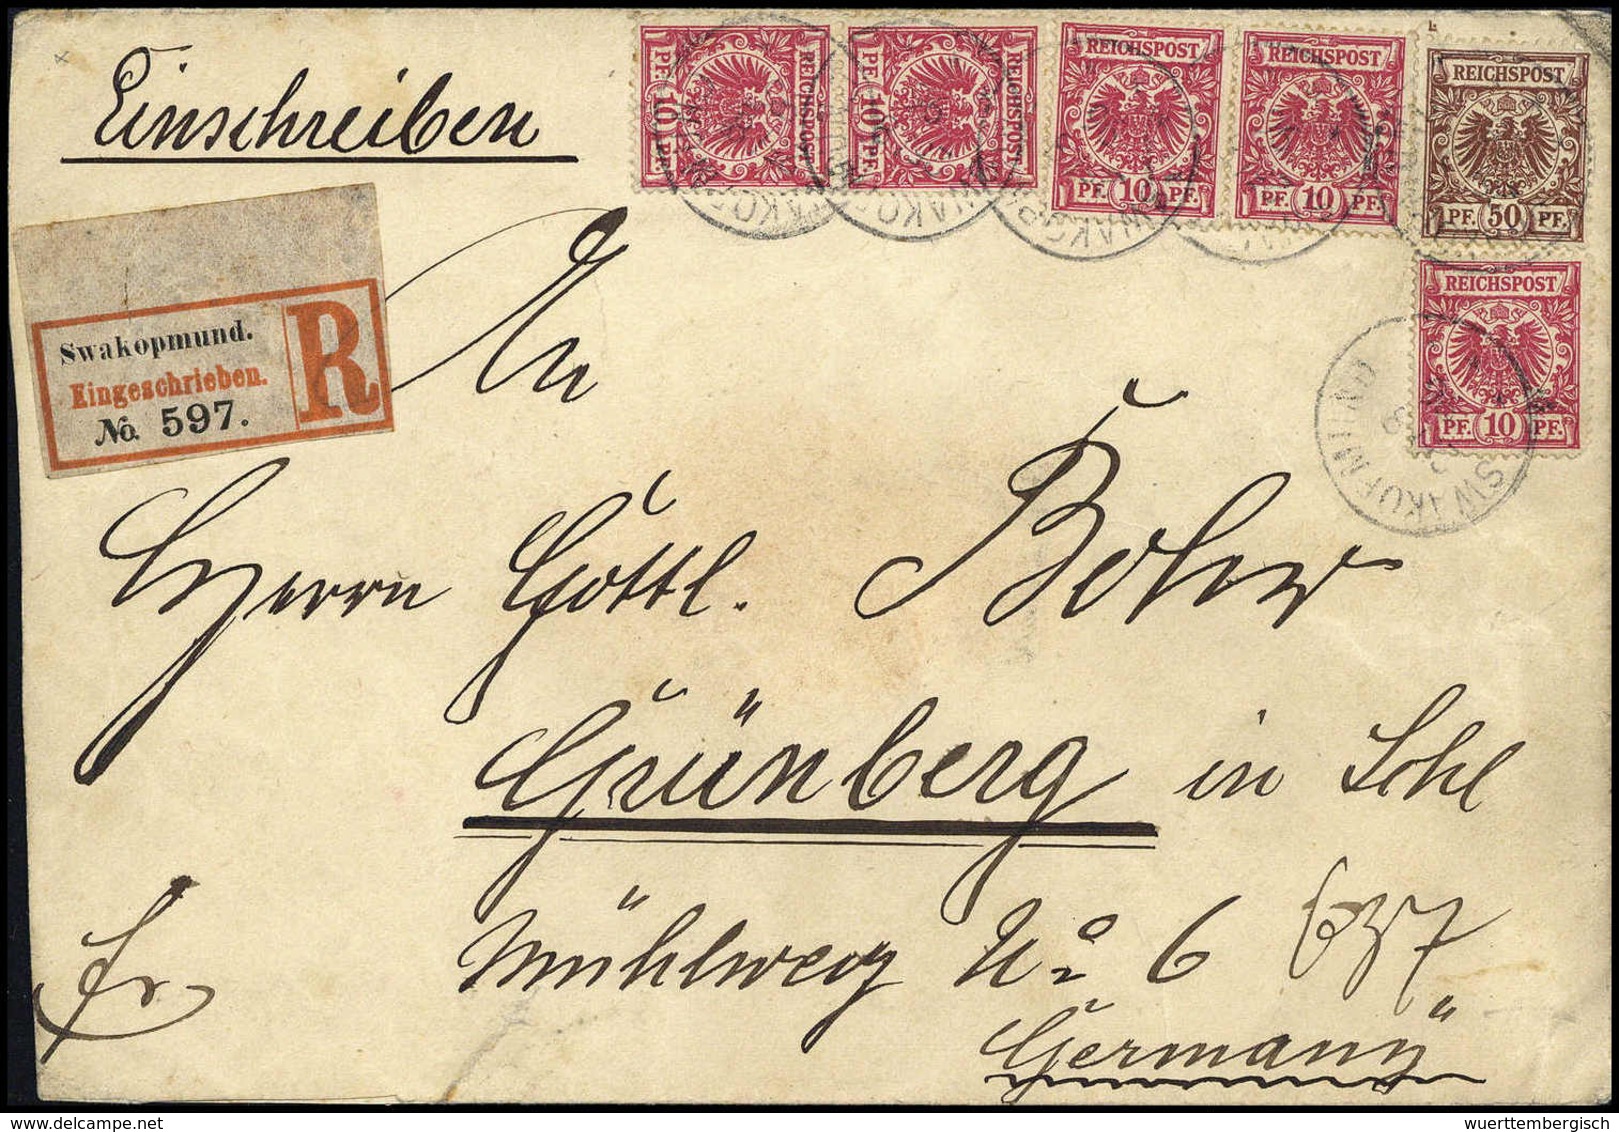 Einschreiben
REICHSPOST
PF. 10 PF.
REICHSPOST
PF. 10 PF.
REICHSPOST
PF. 10 PF.
REICHSPOST
PF. 10 PF.
REICHSPOST
PF. 50 PF.
REICHSPOST
PF. 10 PF.
Swakopmund.
Eingeschrieben.
No. 597.
R
SWAKOPMUND
An
Herrn Gottl. Bohr
Grünberg in Schl
Mühlweg No 6
637
Fr
Germany
wuerttembergisch